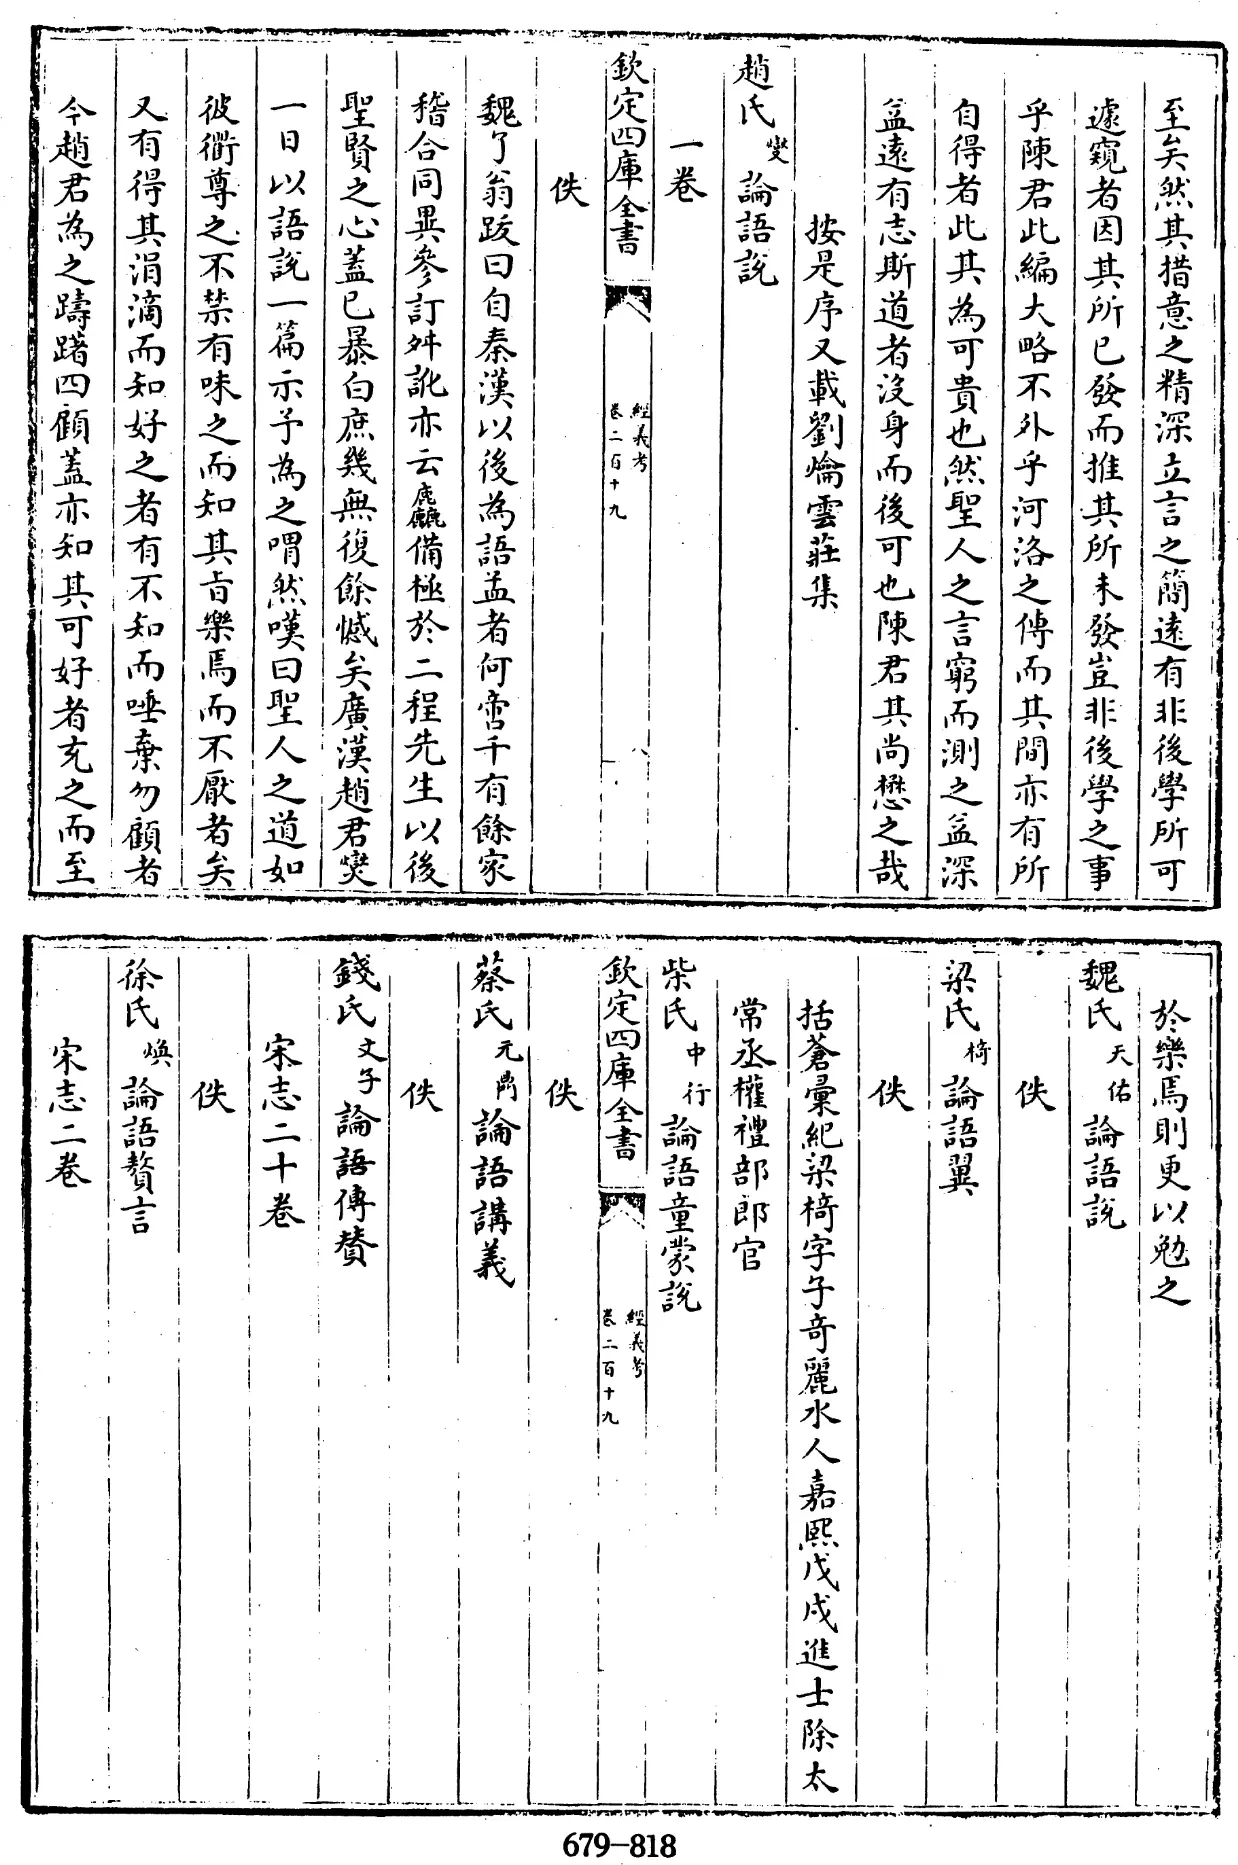 至矣然其措意之精深立言之簡遠有非後學所可
遽窺者因其所已發而推其所未發豈非後學之事
乎陳君此編大略不外乎河洛之傳而其間亦有所
自得者此其為可貴也然聖人之言窮而測之益深
益遠有志斯道者沒身而後可也陳君其尚懋之哉
按是序又載劉爚雲莊集
趙氏燮論語說
一卷
欽定四庫全書
經義考
卷二百十九
八
佚
魏了翁跋曰自秦漢以後為語孟者何啻千有餘家
稽合同異參訂舛訛亦云麤備極於二程先生以後
聖賢之心蓋已暴白庶幾無復餘憾矣廣漢趙君燮
一日以語說一篇示予為之喟然嘆曰聖人之道如
彼衢尊之不禁有味之而知其旨樂焉而不厭者矣
又有得其涓滴而知好之者有不知而唾棄勿顧者
今趙君為之躊躇四顧蓋亦知其可好者充之而至
於樂焉則更以勉之
魏氏天佑論語說
佚
梁氏椅論語翼
佚
括蒼彙紀梁椅字子奇麗水人嘉熙戊戌進士除太
常丞權禮部郎官
柴氏中行論語童蒙說
欽定四庫全書
經義考
卷二百十九
佚
蔡氏元鼎論語講義
佚
錢氏文子論語傳贊
宋志二十卷
佚
徐氏煥論語贅言
宋志二卷
679-818